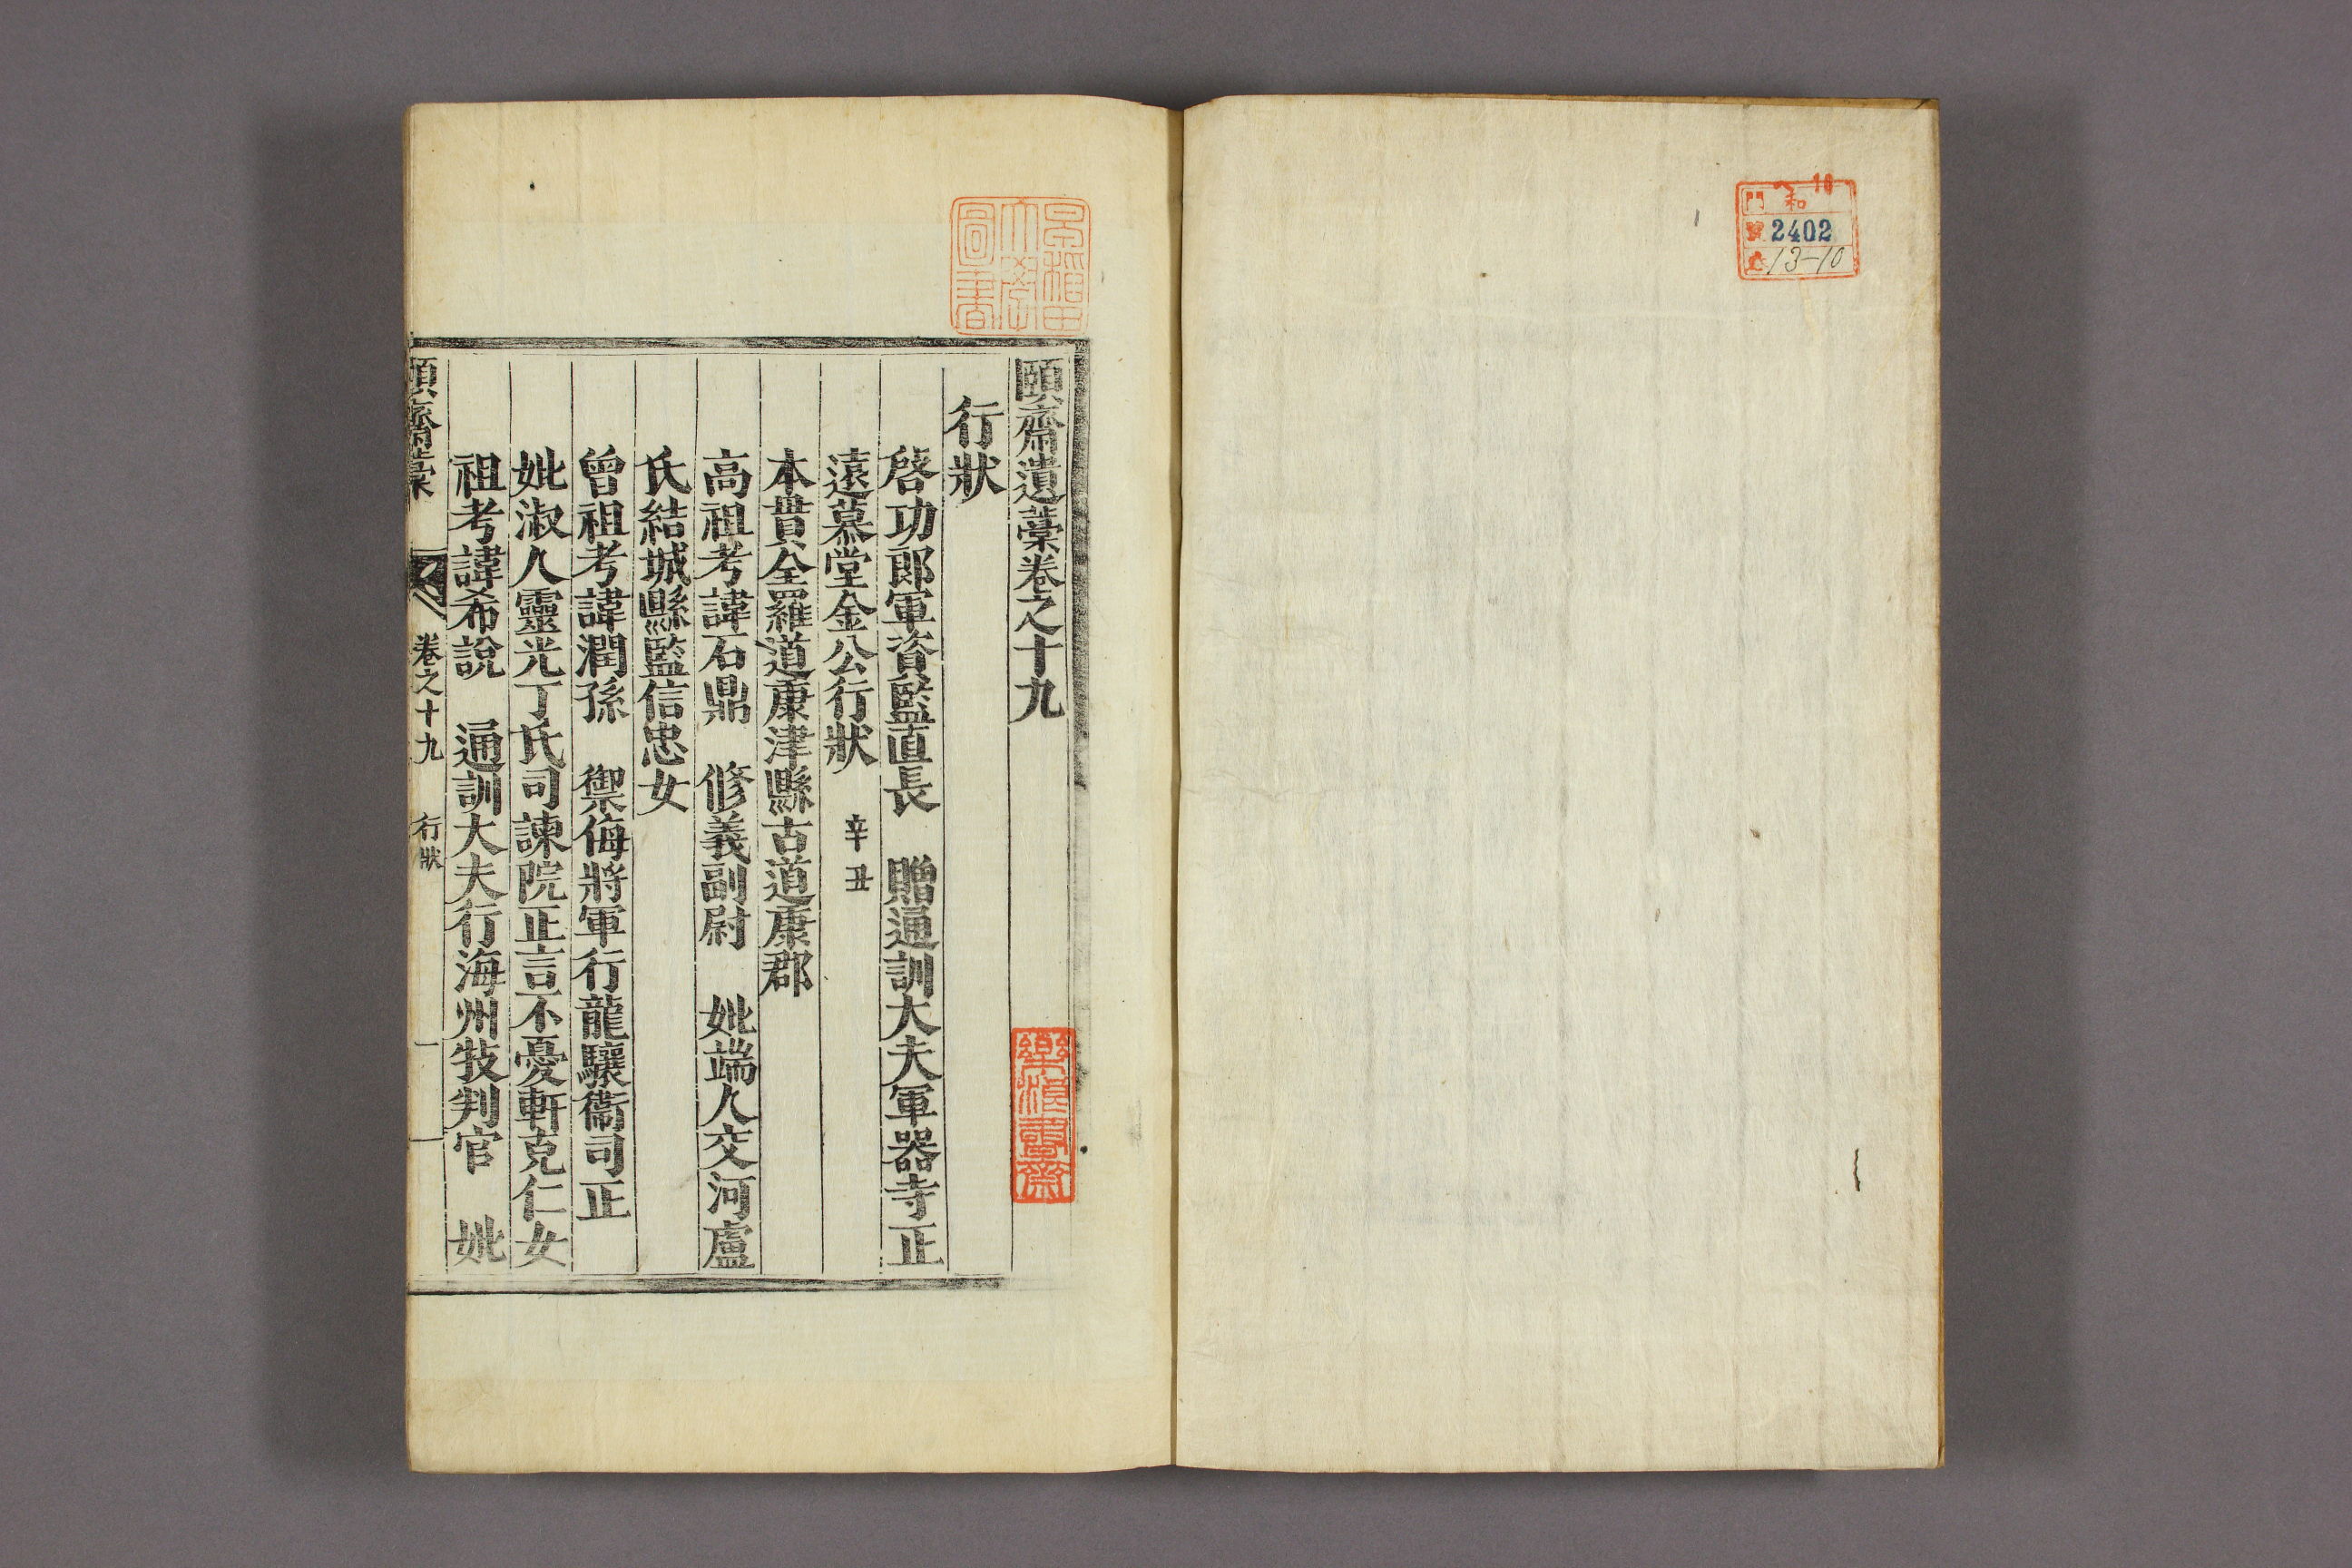 和 10
門
號 2402
卷 13-10
早稻田
大學
圖書
頤齋遺藁卷之十九
行狀
啓功郎軍資監直長 贈通訓大夫軍器寺正
遠慕堂金公行狀 辛丑
本貫全羅道康津縣古道康郡
高祖考諱石鼎 修義副尉 妣端人交河盧
氏結城縣監信忠女
曾祖考諱潤孫 禦侮將軍行龍驤衛司正
妣淑人靈光丁氏司諫院正言不憂軒克仁女
祖考諱希說 通訓大夫行海州牧判官 妣
頤齋藁 卷之十九 行狀 一